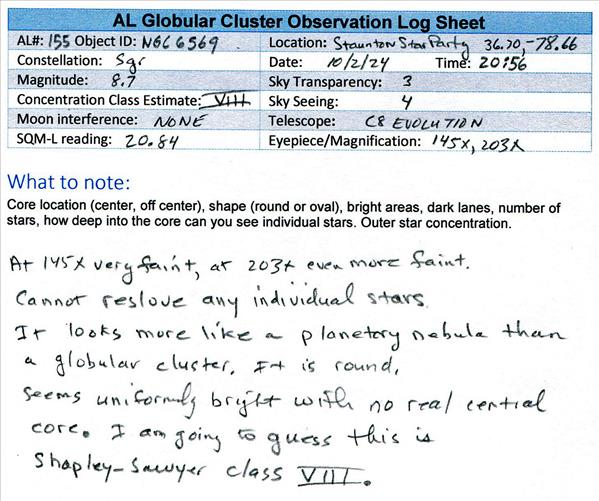 AL Globular Cluster Observation Log Sheet
AL#: 155 Object ID: NGC 6569 Location: Staunton Star Party 36.70, -78.66
Constellation: Sgr Date: 10/2/24 Time: 20:56
Magnitude: 8.7 Sky Transparency: 3
Concentration Class Estimate: VIII Sky Seeing: 4
Moon interference: NONE Telescope: C8 EVOLUTION
SQM-L reading: 20.84 Eyepiece/Magnification: 145X, 203X
What to note:
Core location (center, off center), shape (round or oval), bright areas, dark lanes, number of
stars, how deep into the core can you see individual stars. Outer star concentration.
At 145X very faint, at 203X even more faint.
Cannot reslove any individual stars.
It looks more like a planetory nebula than
a globular cluster. It is round,
seems uniformly bright with no real central
core. I am going to guess this is
Shapley-Sawyer class VIII.